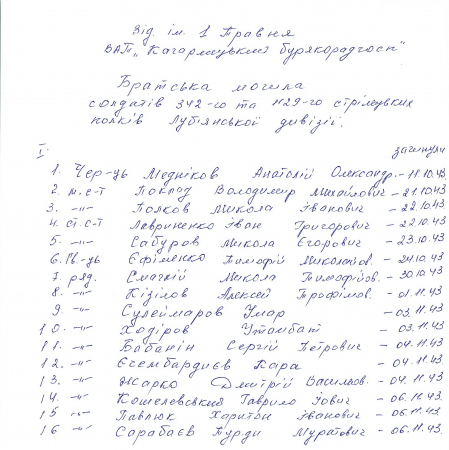 Від. ім. 1 Травня
ВАП „Кагарлицький бурякорадгосп"
Братська могила
солдатів 342-го та 1129-го стрілецьких
полків Лубянської дивізії.
I. загинули
1. Чер-ць Медніков Анатолій Олександр. - 11.10.43
2. м. с-т Поклад Володимир Михайлович - 21.10.43
3. -"- Полков Микола Іванович - 22.10.43
4. ст. с-т Лавриненко Іван Григорович - 22.10.43
5. -"- Сабуров Микола Єгорович - 23.10.43
6. Гв-ць Єфіменко Тимофій Миколайов. - 24.10.43
7. ряд. Смачкій Микола Тимофійов. - 30.10.43
8. -"- Кізілов Алексей Трофімов. - 01.11.43
9 -"- Сулеймаров Умар - 03.11.43
10. -"- Ходіров Утомбат - 03.11.43
11. -"- Бабанін Сергій Петрович - 04.11.43
12. -"- Єсембардиєв Кара - 04.11.43
13. -"- Жарко Дмитрій Васильов. - 04.11.43
14. -"- Кошелевський Гаврило Іович - 06.11.43
15 -"- Павлюк Харитон Іванович - 06.11.43
16 -"- Сарабаєв Турди Муратович - 06.11.43